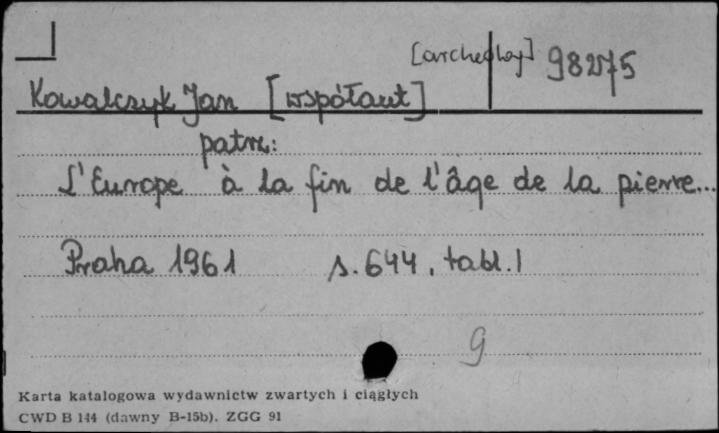 [archeolog] 98275
Kowalczyk Jan [współaut]
patrz:
L'Europe à la fin de l'âge de la pierre...
Praha 1961 s. 644, tabl. 1
9
Karta katalogowa wydawnictw zwartych i ciągłych
CWD B 144 (dawny B-15b). ZGG 91